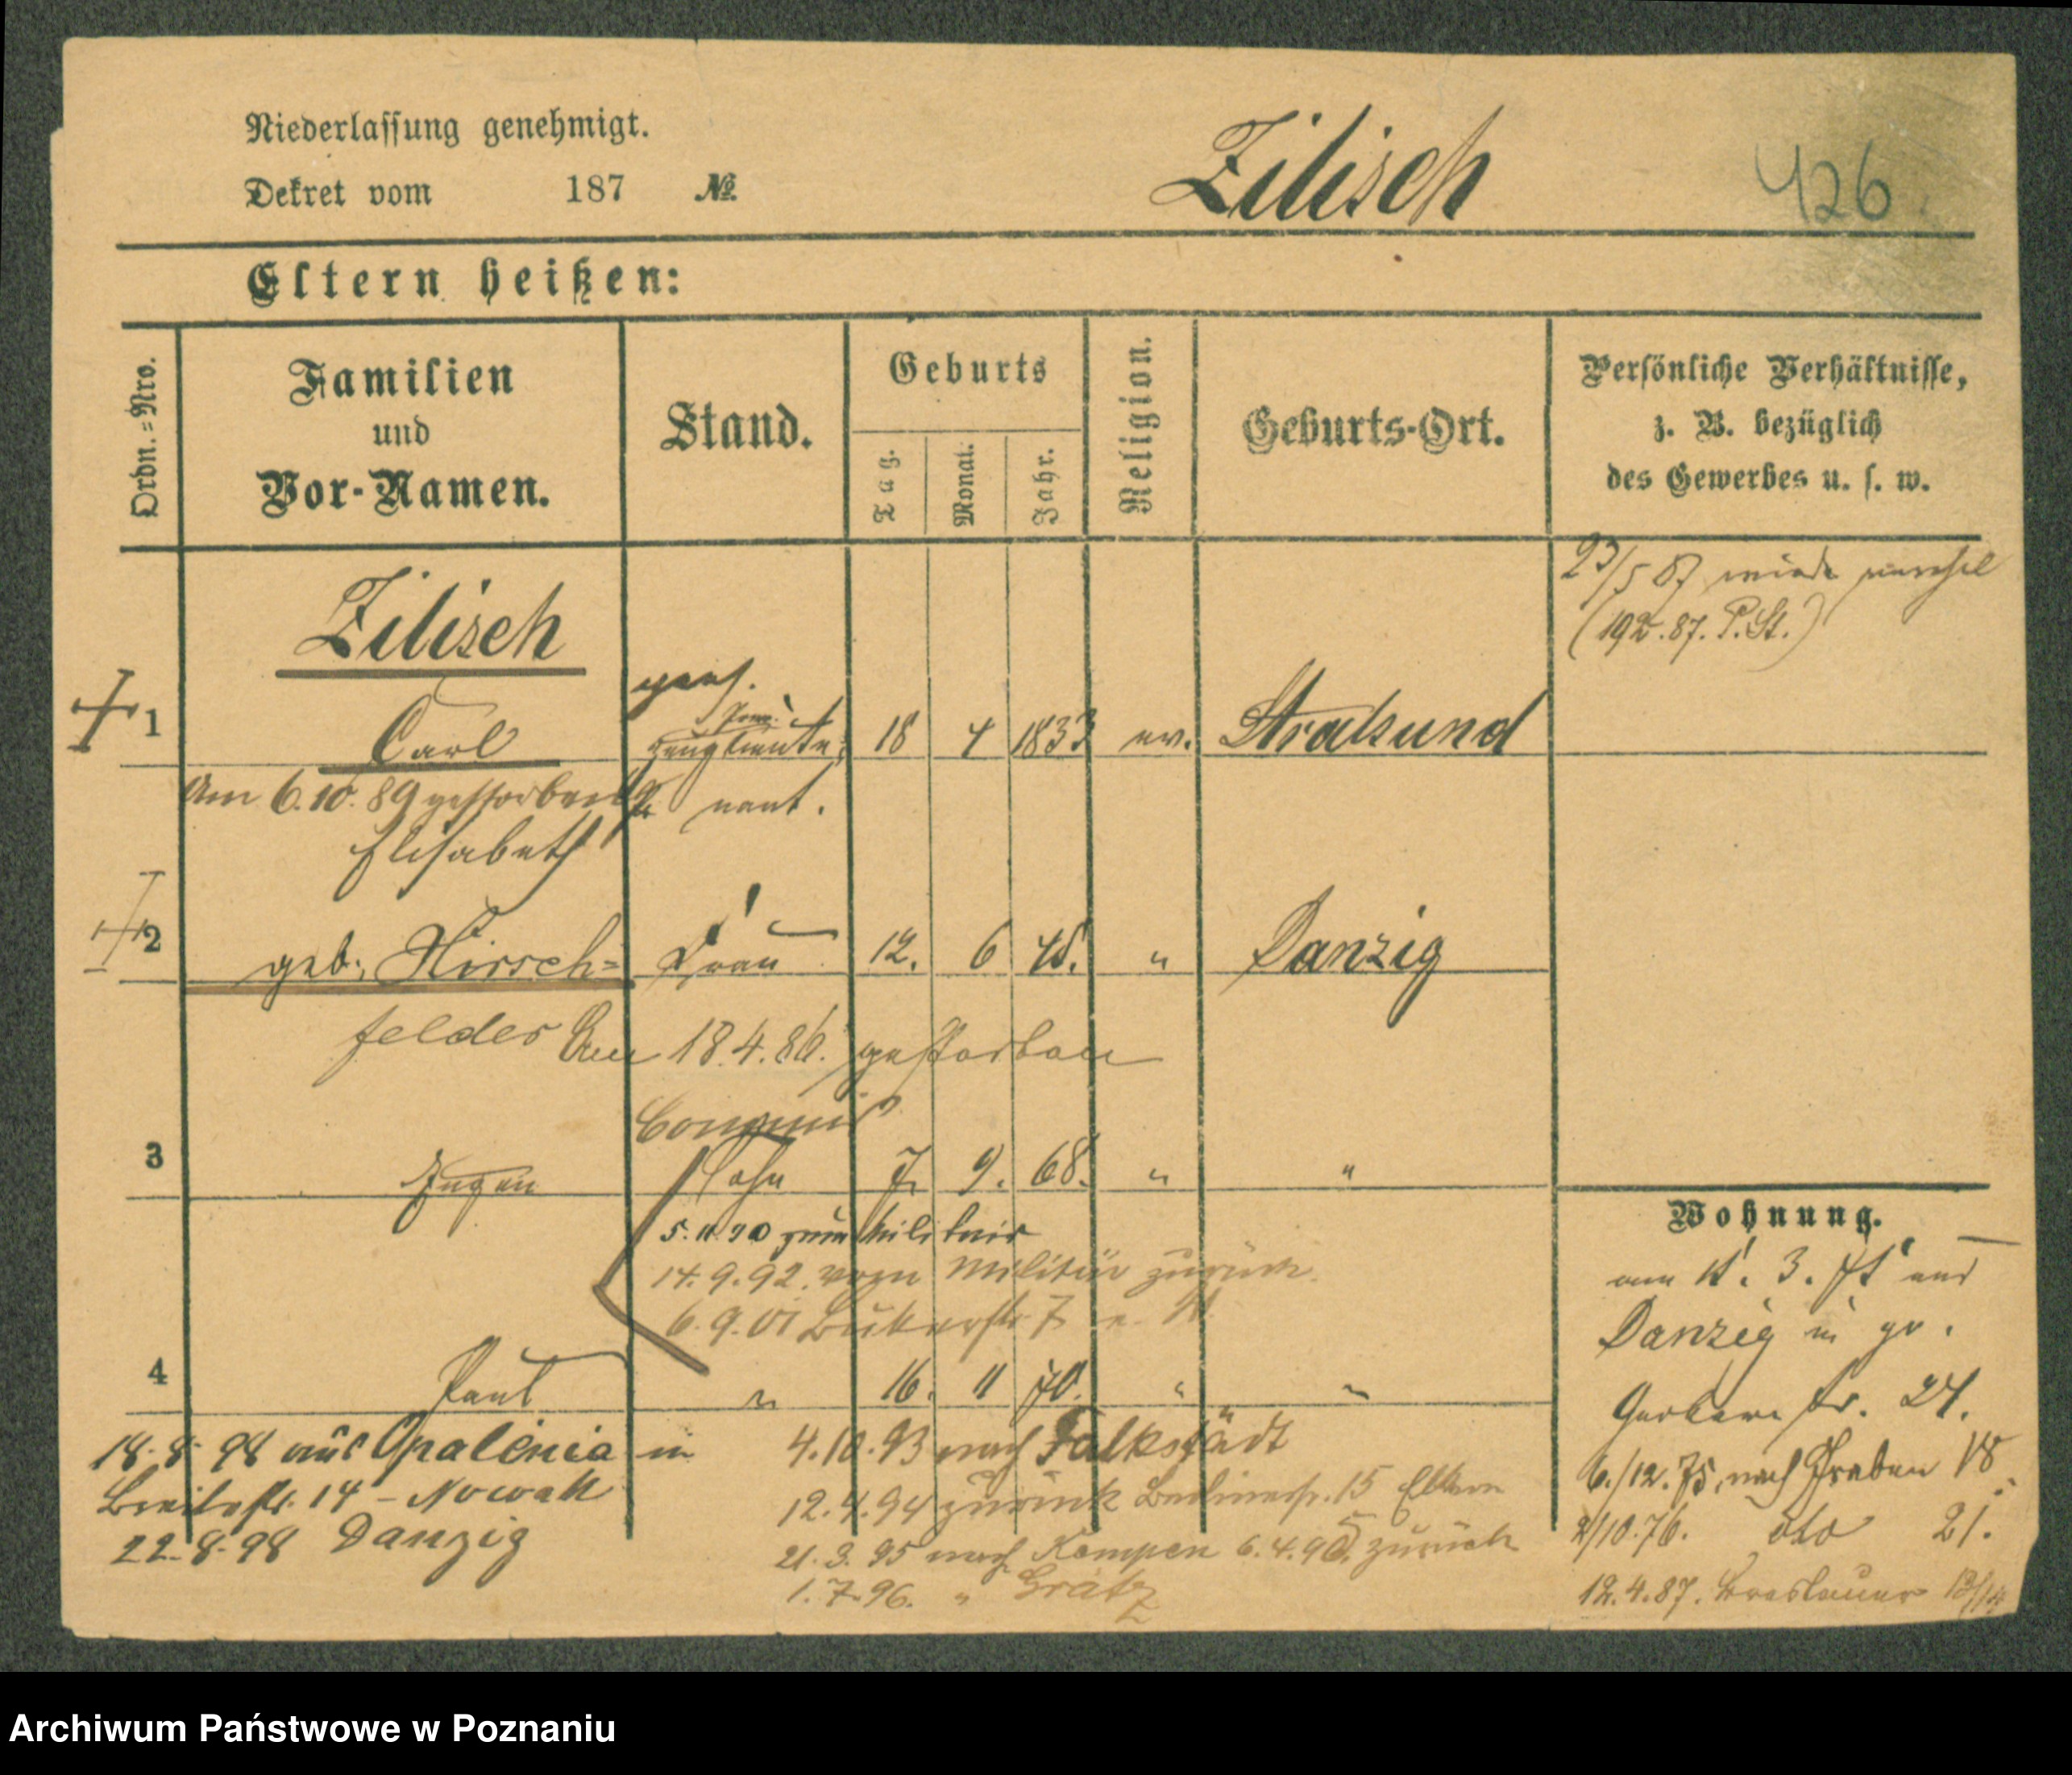 Niederlassung genehmigt.
Dekret vom 187 №
Zilisch
426
Eltern heißen:
Ordn.=Nro.
Familien
und
Vor-Namen.
Stand.
Geburts
Tag.
Monat.
Jahr.
Religion.
Geburts-Ort.
Persönliche Verhältnisse,
z. B. bezüglich
des Gewerbes u. s. w.
23/5 87
(192.87. P. St.)
Zilisch
1 Carl 18 4 1833 ev. Stralsund
nant.
Am 6.10.89 gestorben
Elisabeth
2 geb. Hirsch= Frau 12. 6 45. " Danzig
felder Am 18.4.86. gestorben
Commis
3 Eugen Sohn 7. 9. 68. " "
5.11.90 zum Militair
14.9.92. vom Militär zurück.
6.9.01 Bukerstr 7
4 Paul " 16. 11 70. " "
18.8.98 aus Opalenia in
Breitestr. 14 - Nowak
22.8.98 Danzig
4.10.93 nach Falkstädt
12.4.94 zurück Berlinerstr. 15 Eltern
21.3.95 nach Kempen 6.4.95. zurück
1.7.96. " Grätz
Wohnung.
Danzig in gr.
Gerberstr. 24.
6./12.75. nach Graben 18.
2/10.76. dto 21.
12.4.87. Breslauer
Archiwum Państwowe w Poznaniu